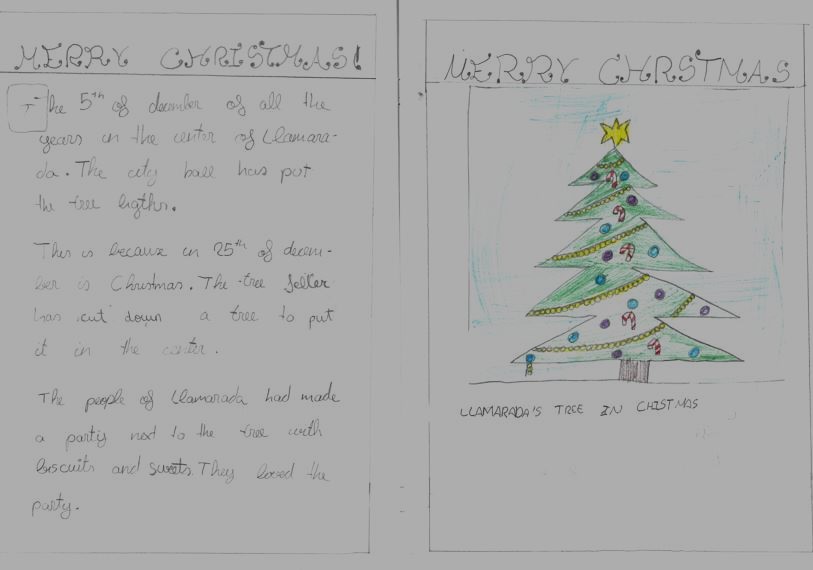 MERRY CHRISTMAS!
The 5th of december of all the
years in the center of Llamara-
da. The city ball has put
the tree ligths.
This is because in 25th of decem-
ber is Christmas. The tree feller
has cut down a tree to put
it in the center.
The people of Llamarada had made
a party next to the tree with
biscuits and sweets. They loved the
party.
MERRY CHRSTMAS
LLAMARADA'S TREE IN CHISTMAS